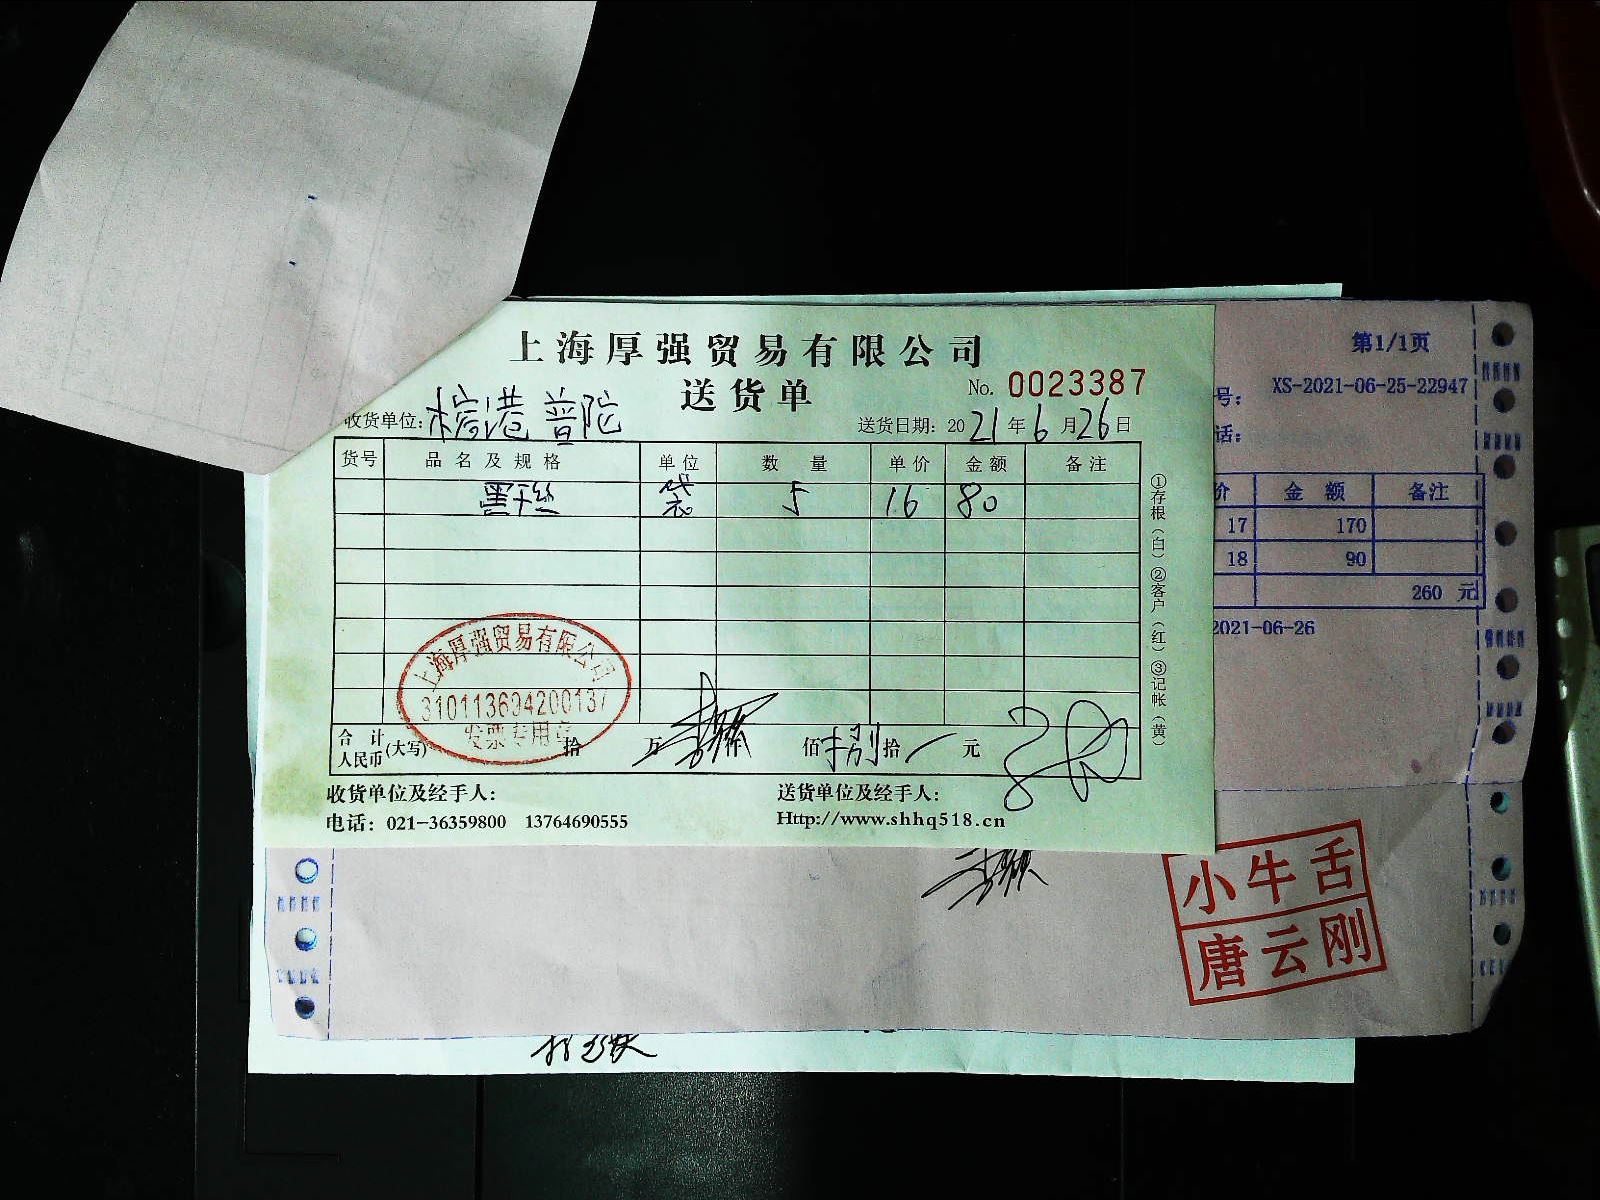 上海厚强贸易有限公司
送货单
No. 0023387
收货单位: 港普陀
送货日期: 2021年6月26日
货号 品名及规格 单位 数量 单价 金额 备注
黑干丝 袋 5 16 80
①存根（白）②客户（红）③记帐（黄）
上海厚强贸易有限公司
310113694200137
发票专用章
合计人民币(大写) 拾 万 仟 佰 捌拾 元
收货单位及经手人:
送货单位及经手人:
电话: 021-36359800 13764690555
Http://www.shhq518.cn
第1/1页
号: XS-2021-06-25-22947
话:
价 金额 备注
17 170
18 90
260 元
2021-06-26
小牛舌
唐云刚